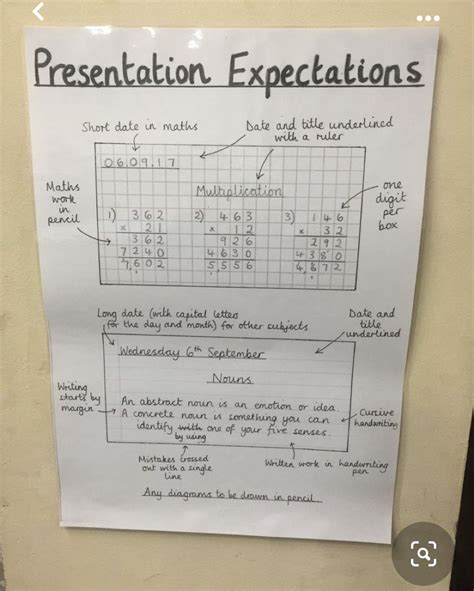 Presentation Expectations
Short date in maths
Date and title underlined
with a ruler
06.09.17
Multiplication
Maths
work
in
pencil
one
digit
per
box
1) 362
x 21
362
7240
7602
2) 463
x 12
926
4630
5556
3) 146
x 32
292
4380
4672
Long date (with capital letters
for the day and month) for other subjects
Date and
title
underlined
Wednesday 6th September
Nouns
Writing
starts by
margin
An abstract noun is an emotion or idea.
A concrete noun is something you can
identify with one of your five senses.
by using
Cursive
handwriting
Mistakes crossed
out with a single
line
Written work in handwriting
pen
Any diagrams to be drawn in pencil.